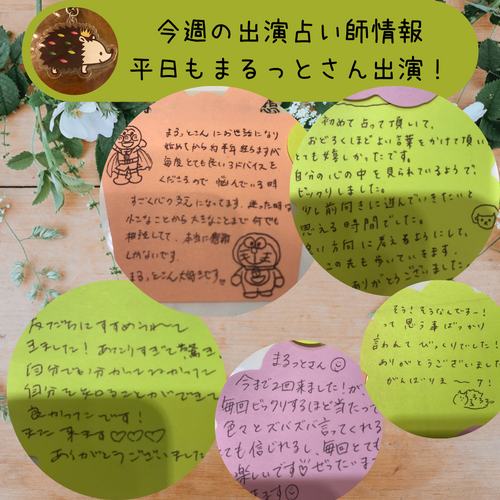 今週の出演占い師情報
平日もまるっとさん出演!
まるっとさんにお世話になり
始めてから約半年経ちますが
毎度とても良いアドバイスを
くださるので 悩んでいる時
すごく心の支えになってます。迷った時は
小さなことから大きなことまで何でも
相談してて、本当に感謝
しかないです。
まるっとさん大好きです♡
初めて占って頂いて、
おどろくほどよい言葉をかけて頂い
とても嬉しかったです。
自分の心の中を見られているようで、
ビックリしました。
少し前向きに進んでいきたいと
思える時間でした。
良い方向に考えるようにして、
この先も歩いていきます。
ありがとうございました
友だちにすすめられて
きました!あたりすぎて驚き、
自分でも分かってなかった
自分を知ることができて
良かったです!
また来ます♡♡♡
ありがとうございました
まるっとさん
今まで2回来ました!が、
毎回ビックリするほど当たって
色々とズバズバ言ってくれる
ても信じれるし、毎回とても
楽しいです♡ぜったいま
きます
そう!そうなんですよー!
って思う事ばっかり
言われてびっくりでした!
ありがとうございました
がんばりまーす!